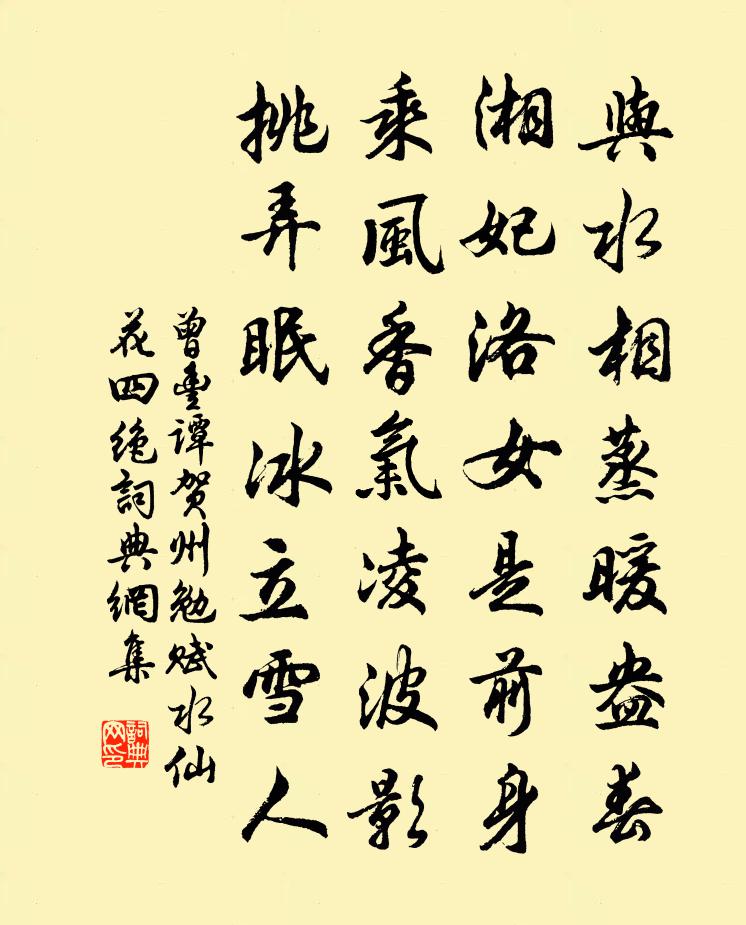 與水相蒸暖盎春
湘妃洛女是前身
乘風香氣凌波影
挑弄眠冰立雪人
曾豐譚贺州勉赋水仙
花四绝詞典網集
詞典網印